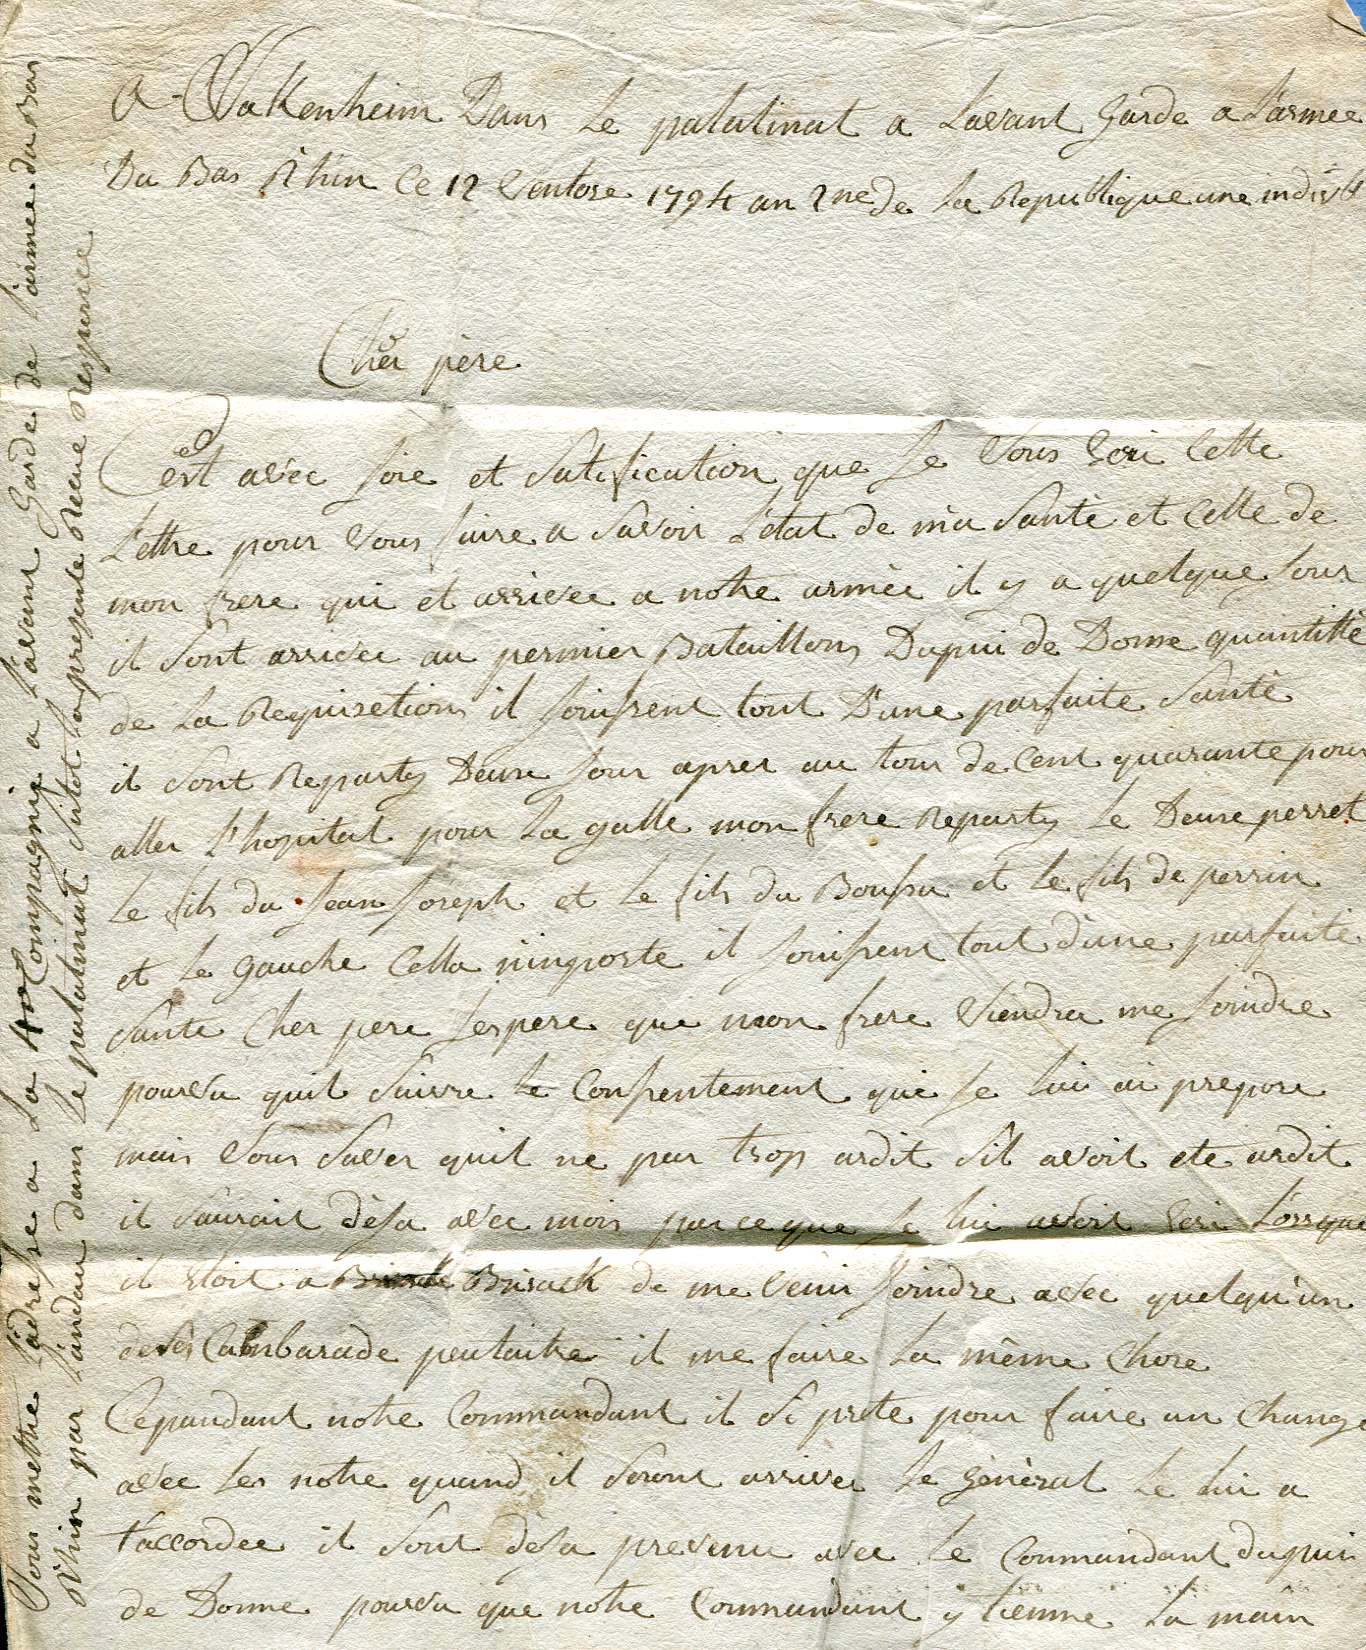 A Wakenheim Dans Le palatinat a Lavant Garde a L'armee
Du Bas Rhin Ce 12 Ventose 1794 an 2me de La Republique une indivisi
Cher père
C'est avec Joie et Satisfication que Je Vous Ecri Cette
Lettre pour Vous faire a Savoir L'état de ma Santé et Celle de
mon frere qui et arrivee a notre armée il y a quelque Jour
il Sont arrivee au permier Bataillons Dupui de Dome quantitté
de La Requisetion il Jouissent tout D'une parfaite Santé
il Sont Reparty Deux Jour apres au tour de Cent quarante pour
aller L'hopital pour La galle mon frere Reparty Le Deux perret
Le fils du Jean Joseph et Le fils du Boussu et Le fils de perrin
et Le Gauche Cella n'inporte il Jouissent tout d'une parfaite
Sante Cher pere J'espere que mon frere Viendra me Joindre
pourvu quil Suivre Le Consentement que Je Lui ai prepose
mais Vous Saver quil ne pas trop ardit S'il avoit ete ardit
il Sauroit Déja avec mois parce que Je Lui avoit Ecri Lorsque
il Etoit a Brisack de me Venir Joindre avec quelqu'un
de Ses Cambarade peutaitre il me faire La même Chose
Cepandant notre Commandant il Si prete pour faire un Change
avec Les notre quand il Seront arrivee Le Général Le Lui a
t'accordee il Sont déja prevenu avec Le Commandant dupui
de Dome pourvu que notre Commandant y tienne La main
Vous mettre L'adresse a La 4me Compagnie a L'avant Garde de L'armee du Bas
Rhin par Landau dans Le palatinat Sitot La presente Recue Responce